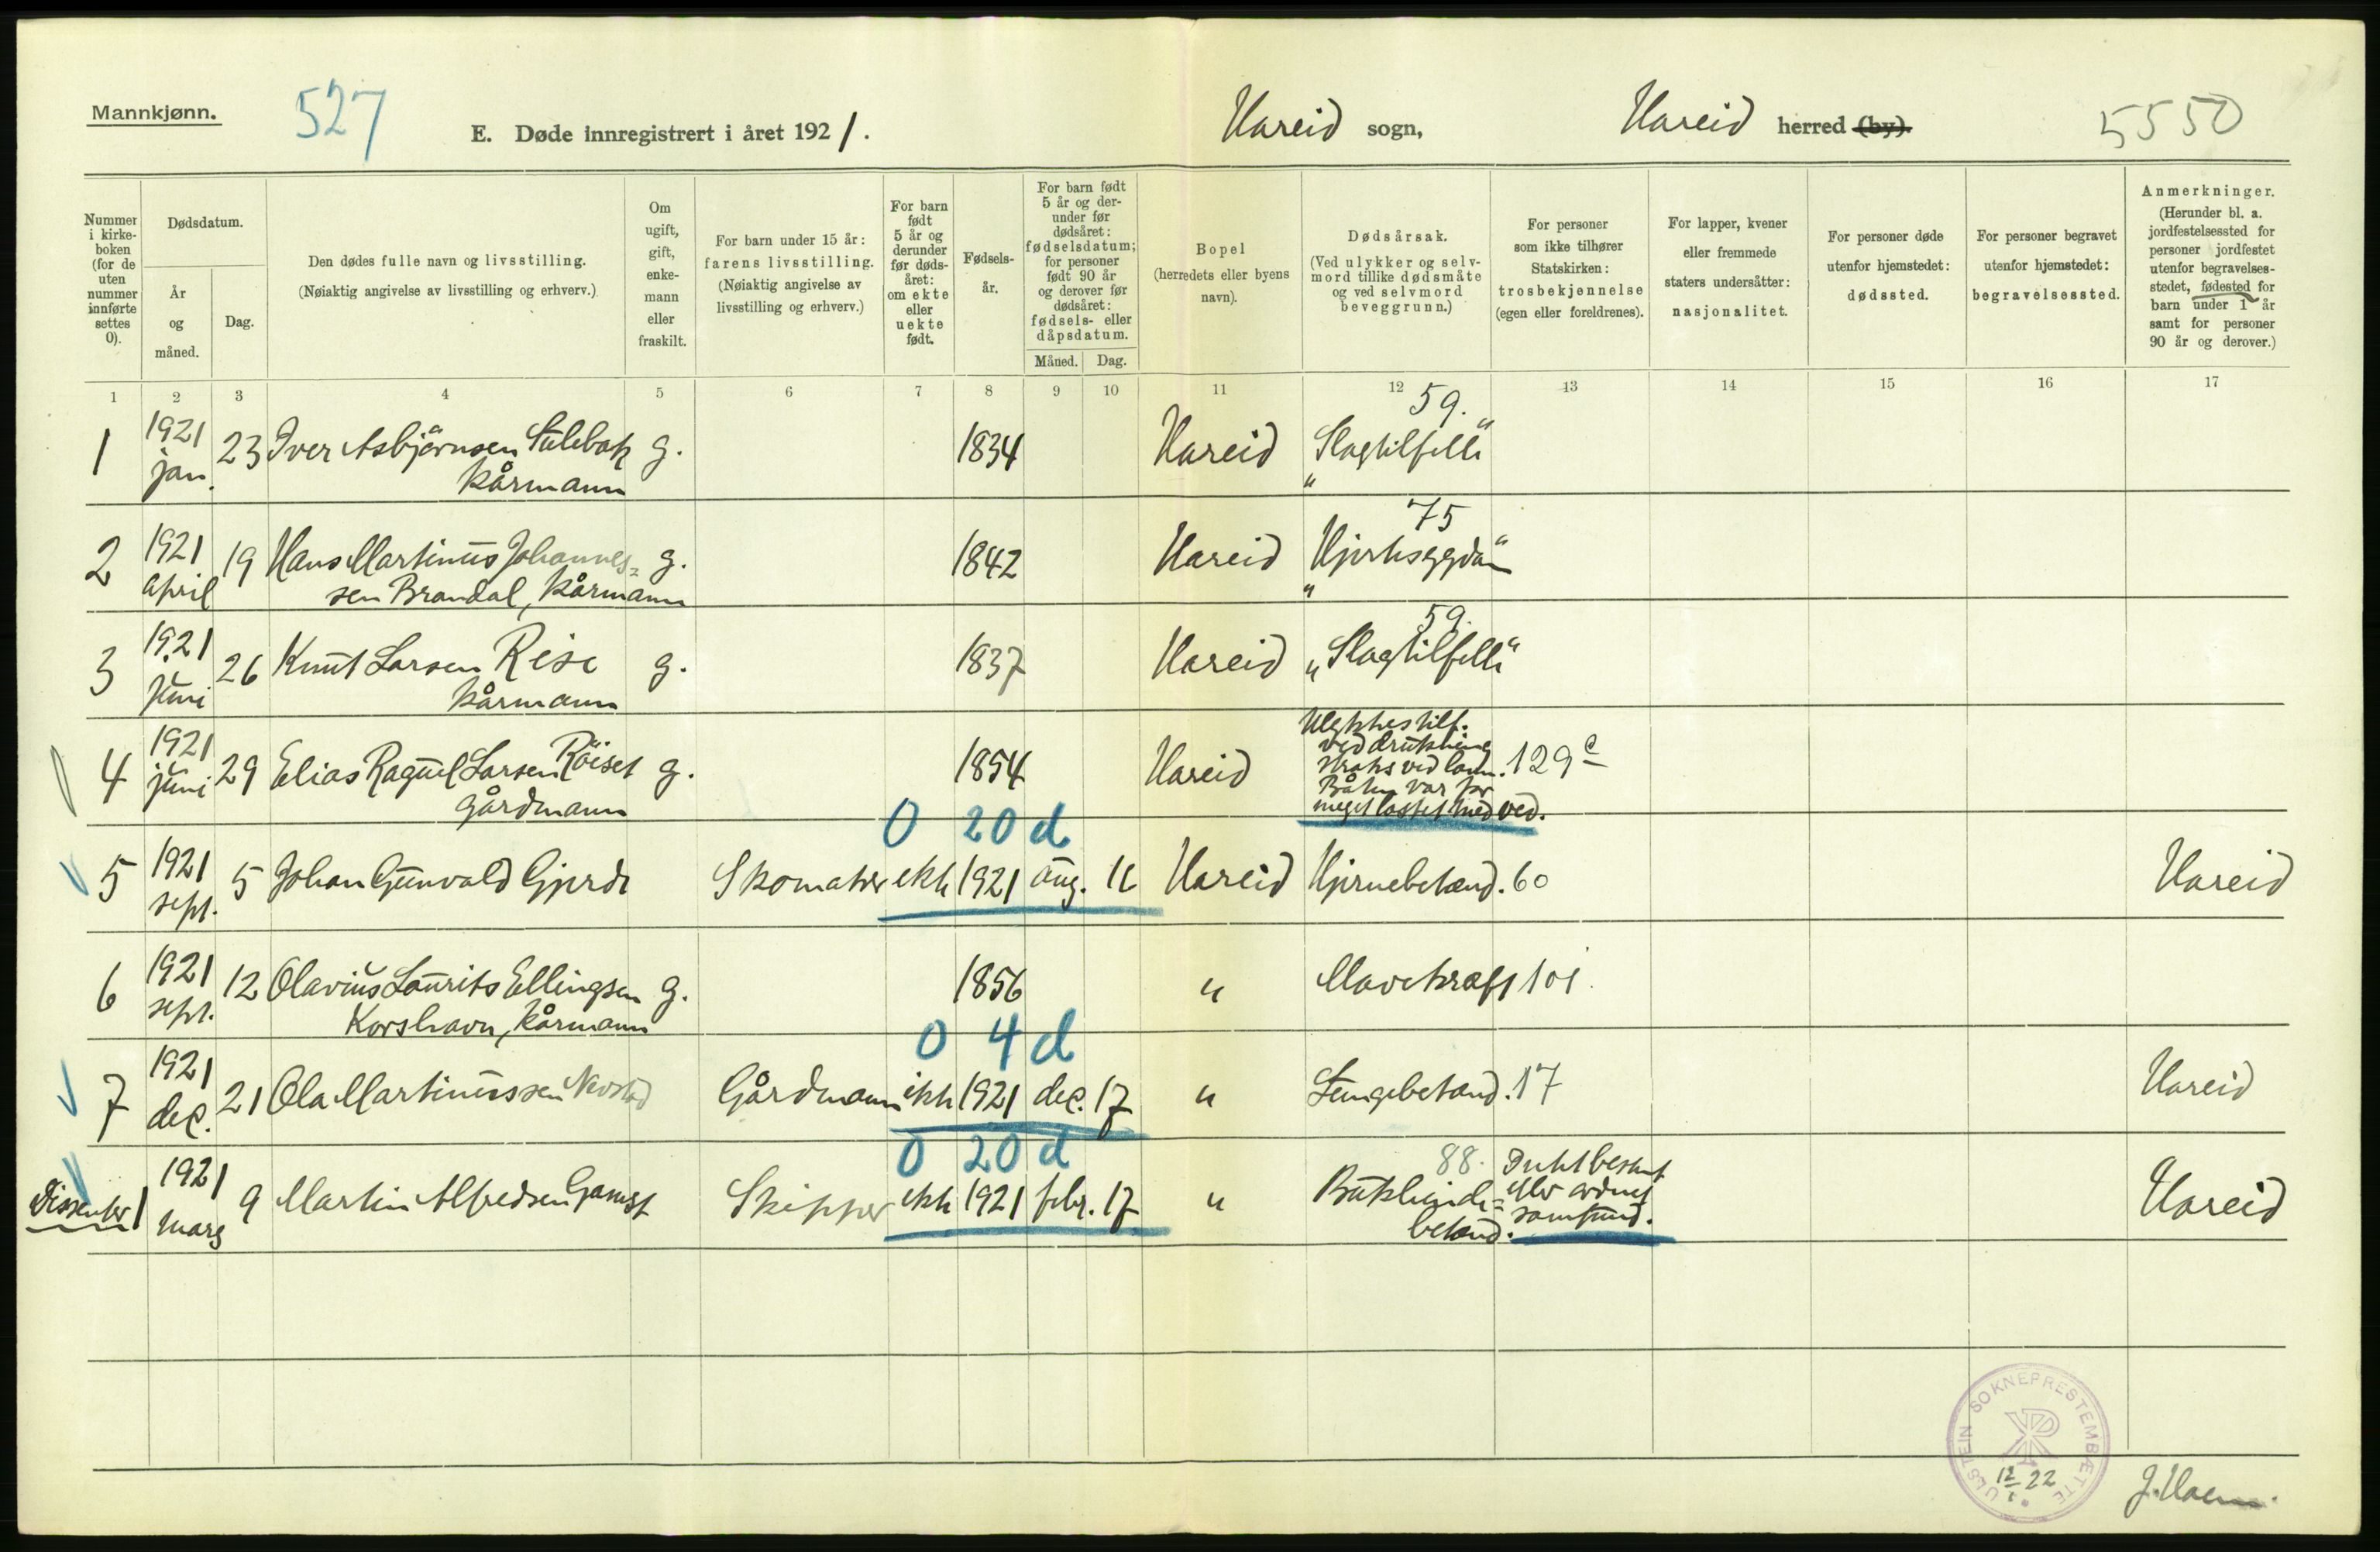 Mannkjønn.
527
E. Døde innregistrert i året 1921.
Hareid sogn,
Hareid herred (by).
5550
Nummer i kirkeboken (for de uten nummer innførte settes 0).
Dødsdatum.
År og måned.
Dag.
Den dødes fulle navn og livsstilling.
(Nøiaktig angivelse av livsstilling og erhverv.)
Om ugift, gift, enkemann eller fraskilt.
For barn under 15 år:
farens livsstilling.
(Nøiaktig angivelse av livsstilling og erhverv.)
For barn født 5 år og derunder før dødsåret: om ekte eller uekte født.
Fødselsår.
For barn født 5 år og derunder før dødsåret: fødselsdatum; for personer født 90 år og derover før dødsåret: fødsels- eller dåpsdatum.
Måned.
Dag.
Bopel
(herredets eller byens navn).
Dødsårsak.
(Ved ulykker og selvmord tillike dødsmåte og ved selvmord beveggrunn.)
For personer som ikke tilhører Statskirken:
trosbekjennelse
(egen eller foreldrenes).
For lapper, kvener eller fremmede staters undersåtter:
nasjonalitet.
For personer døde utenfor hjemstedet:
dødssted.
For personer begravet utenfor hjemstedet:
begravelsessted.
Anmerkninger.
(Herunder bl. a. jordfestelsessted for personer jordfestet utenfor begravelsesstedet, fødested for barn under 1 år samt for personer 90 år og derover.)
1 2 3 4 5 6 7 8 9 10 11 12 13 14 15 16 17
59.
1 1921 jan. 23 Iver Asbjørnsen g. 1834 Hareid "Slagtilfelle"
Kårmann
75
2 1921 april 19 Hans Martinus Johannes= g. 1842 Hareid
sen Brandal, Kårmann
59.
3 1921 juni 26 Knut Larsen Rise g. 1837 Hareid "Slagtilfelle"
Kårmann
4 1921 juni 29 Elias Raguel Larsen Röiset g. 1854 Hareid Ulykkestilf.
ved drukning
straks ved land. 129 c
Båten var for
meget lastet med ved.
Gårdmann
0 20 d
5 1921 sept. 5 Johan Gunvald Gjerde Skomaker ekte 1921 aug. 16 Hareid Hjernebetænd. 60 Hareid
6 1921 sept. 12 Olavius Laurits Ellingsen g. 1856 " Mavekræft 101.
Korshavn, Kårmann
0 4 d
7 1921 dec. 21 Ola Martinussen Gårdmann ekte 1921 dec. 17 " Lungebetænd. 17 Hareid
0 20 d
88.
Dissenter 1 1921 mars 9 Martin Alfredsen Skipper ekte 1921 febr. 17 " Bukhinde=
betænd.
samfund.
Hareid
ULSTEIN SOKNEPRESTEMBÆTTE
12/1 22